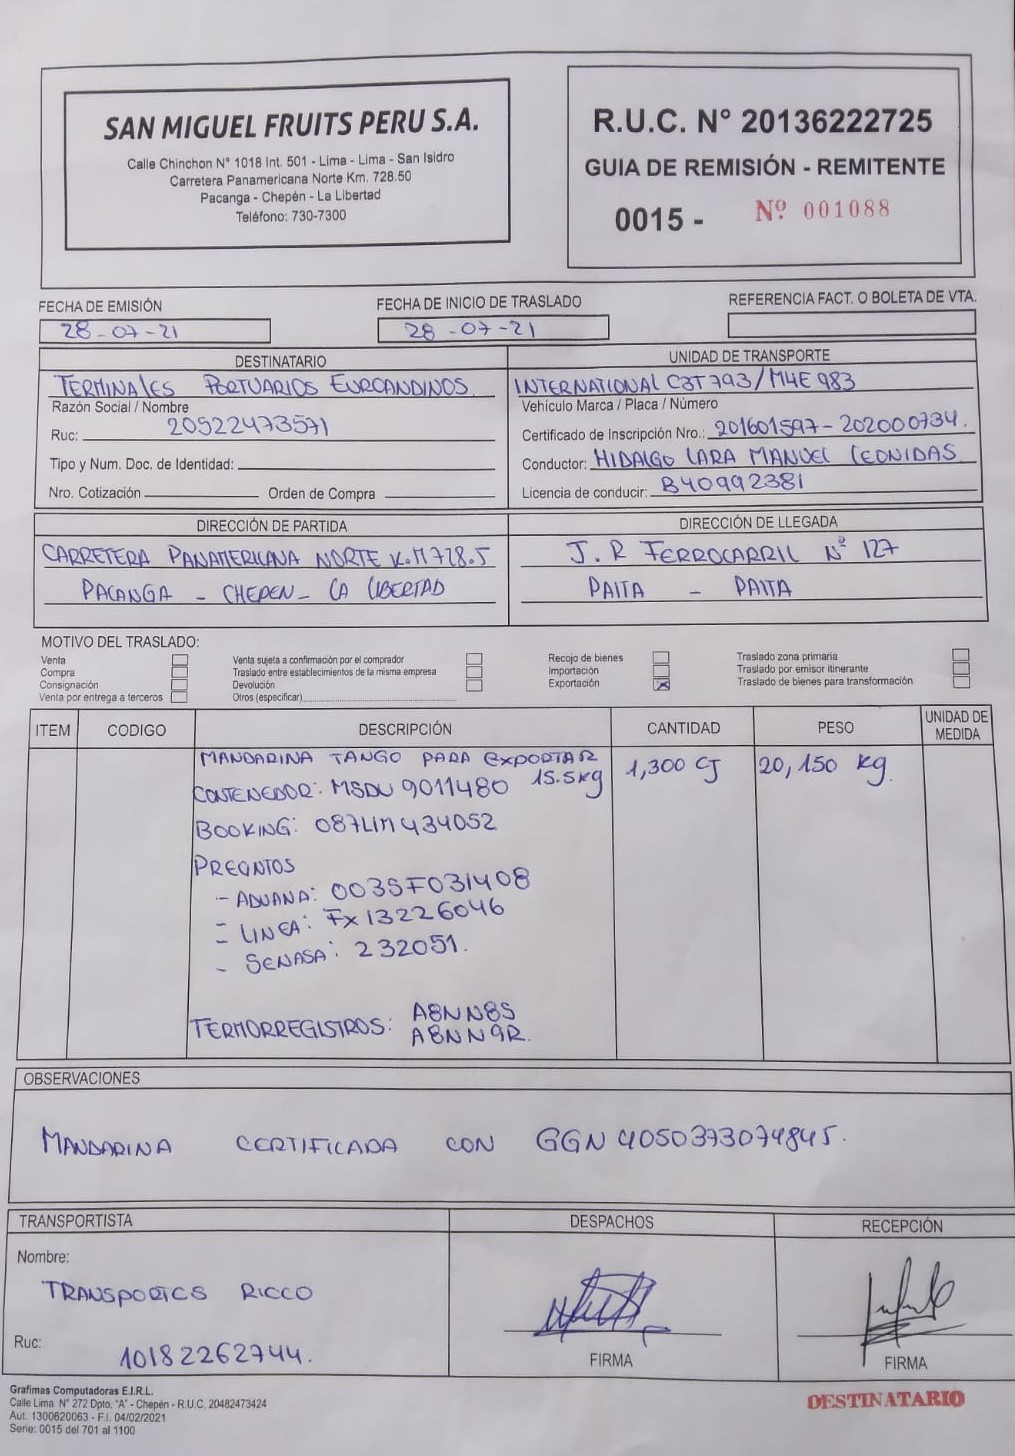 SAN MIGUEL FRUITS PERU S.A.
Calle Chinchon N° 1018 Int. 501 - Lima - Lima - San Isidro
Carretera Panamericana Norte Km. 728.50
Pacanga - Chepén - La Libertad
Teléfono: 730-7300
R.U.C. N° 20136222725
GUIA DE REMISIÓN - REMITENTE
0015 - Nº 001088
FECHA DE EMISIÓN
28-07-21
FECHA DE INICIO DE TRASLADO
28-07-21
REFERENCIA FACT. O BOLETA DE VTA.
DESTINATARIO
TERMINALES PORTUARIOS EUROANDINOS
Razón Social / Nombre
Ruc: 20522473571
Tipo y Num. Doc. de Identidad:
Nro. Cotización Orden de Compra
UNIDAD DE TRANSPORTE
INTERNATIONAL C3T793/M4E983
Vehículo Marca / Placa / Número
Certificado de Inscripción Nro.: 201601597-202000734.
Conductor: HIDALGO LARA MANUEL LEONIDAS
Licencia de conducir: B40992381
DIRECCIÓN DE PARTIDA
CARRETERA PANAMERICANA NORTE K.M 728.5
PACANGA - CHEPEN - LA LIBERTAD
DIRECCIÓN DE LLEGADA
J.R FERROCARRIL Nº 127
PAITA - PAITA
MOTIVO DEL TRASLADO:
Venta
Compra
Consignación
Venta por entrega a terceros
Venta sujeta a confirmación por el comprador
Traslado entre establecimientos de la misma empresa
Devolución
Otros (especificar)
Recojo de bienes
Importación
Exportación X
Traslado zona primaria
Traslado por emisor itinerante
Traslado de bienes para transformación
ITEM CODIGO DESCRIPCIÓN CANTIDAD PESO UNIDAD DE MEDIDA
MANDARINA TANGO PARA EXPORTAR 1,300 CJ 20,150 Kg.
CONTENEDOR: MSDU 9011480 15.5kg
BOOKING: 087LIM434052
PRECINTOS
- ADUANA: 003SF031408
- LINEA: FX13226046
- SENASA: 232051.
TERMORREGISTROS: A8NN8S
A8NN9R.
OBSERVACIONES
MANDARINA CERTIFICADA CON GGN 4050373074845.
TRANSPORTISTA
Nombre:
TRANSPORTES RICCO
Ruc: 10182262744.
DESPACHOS
FIRMA
RECEPCIÓN
FIRMA
Grafimas Computadoras E.I.R.L.
Calle Lima N° 272 Dpto. "A" - Chepén - R.U.C. 20482473424
Aut. 1300620063 - F.I. 04/02/2021
Serie: 0015 del 701 al 1100
DESTINATARIO